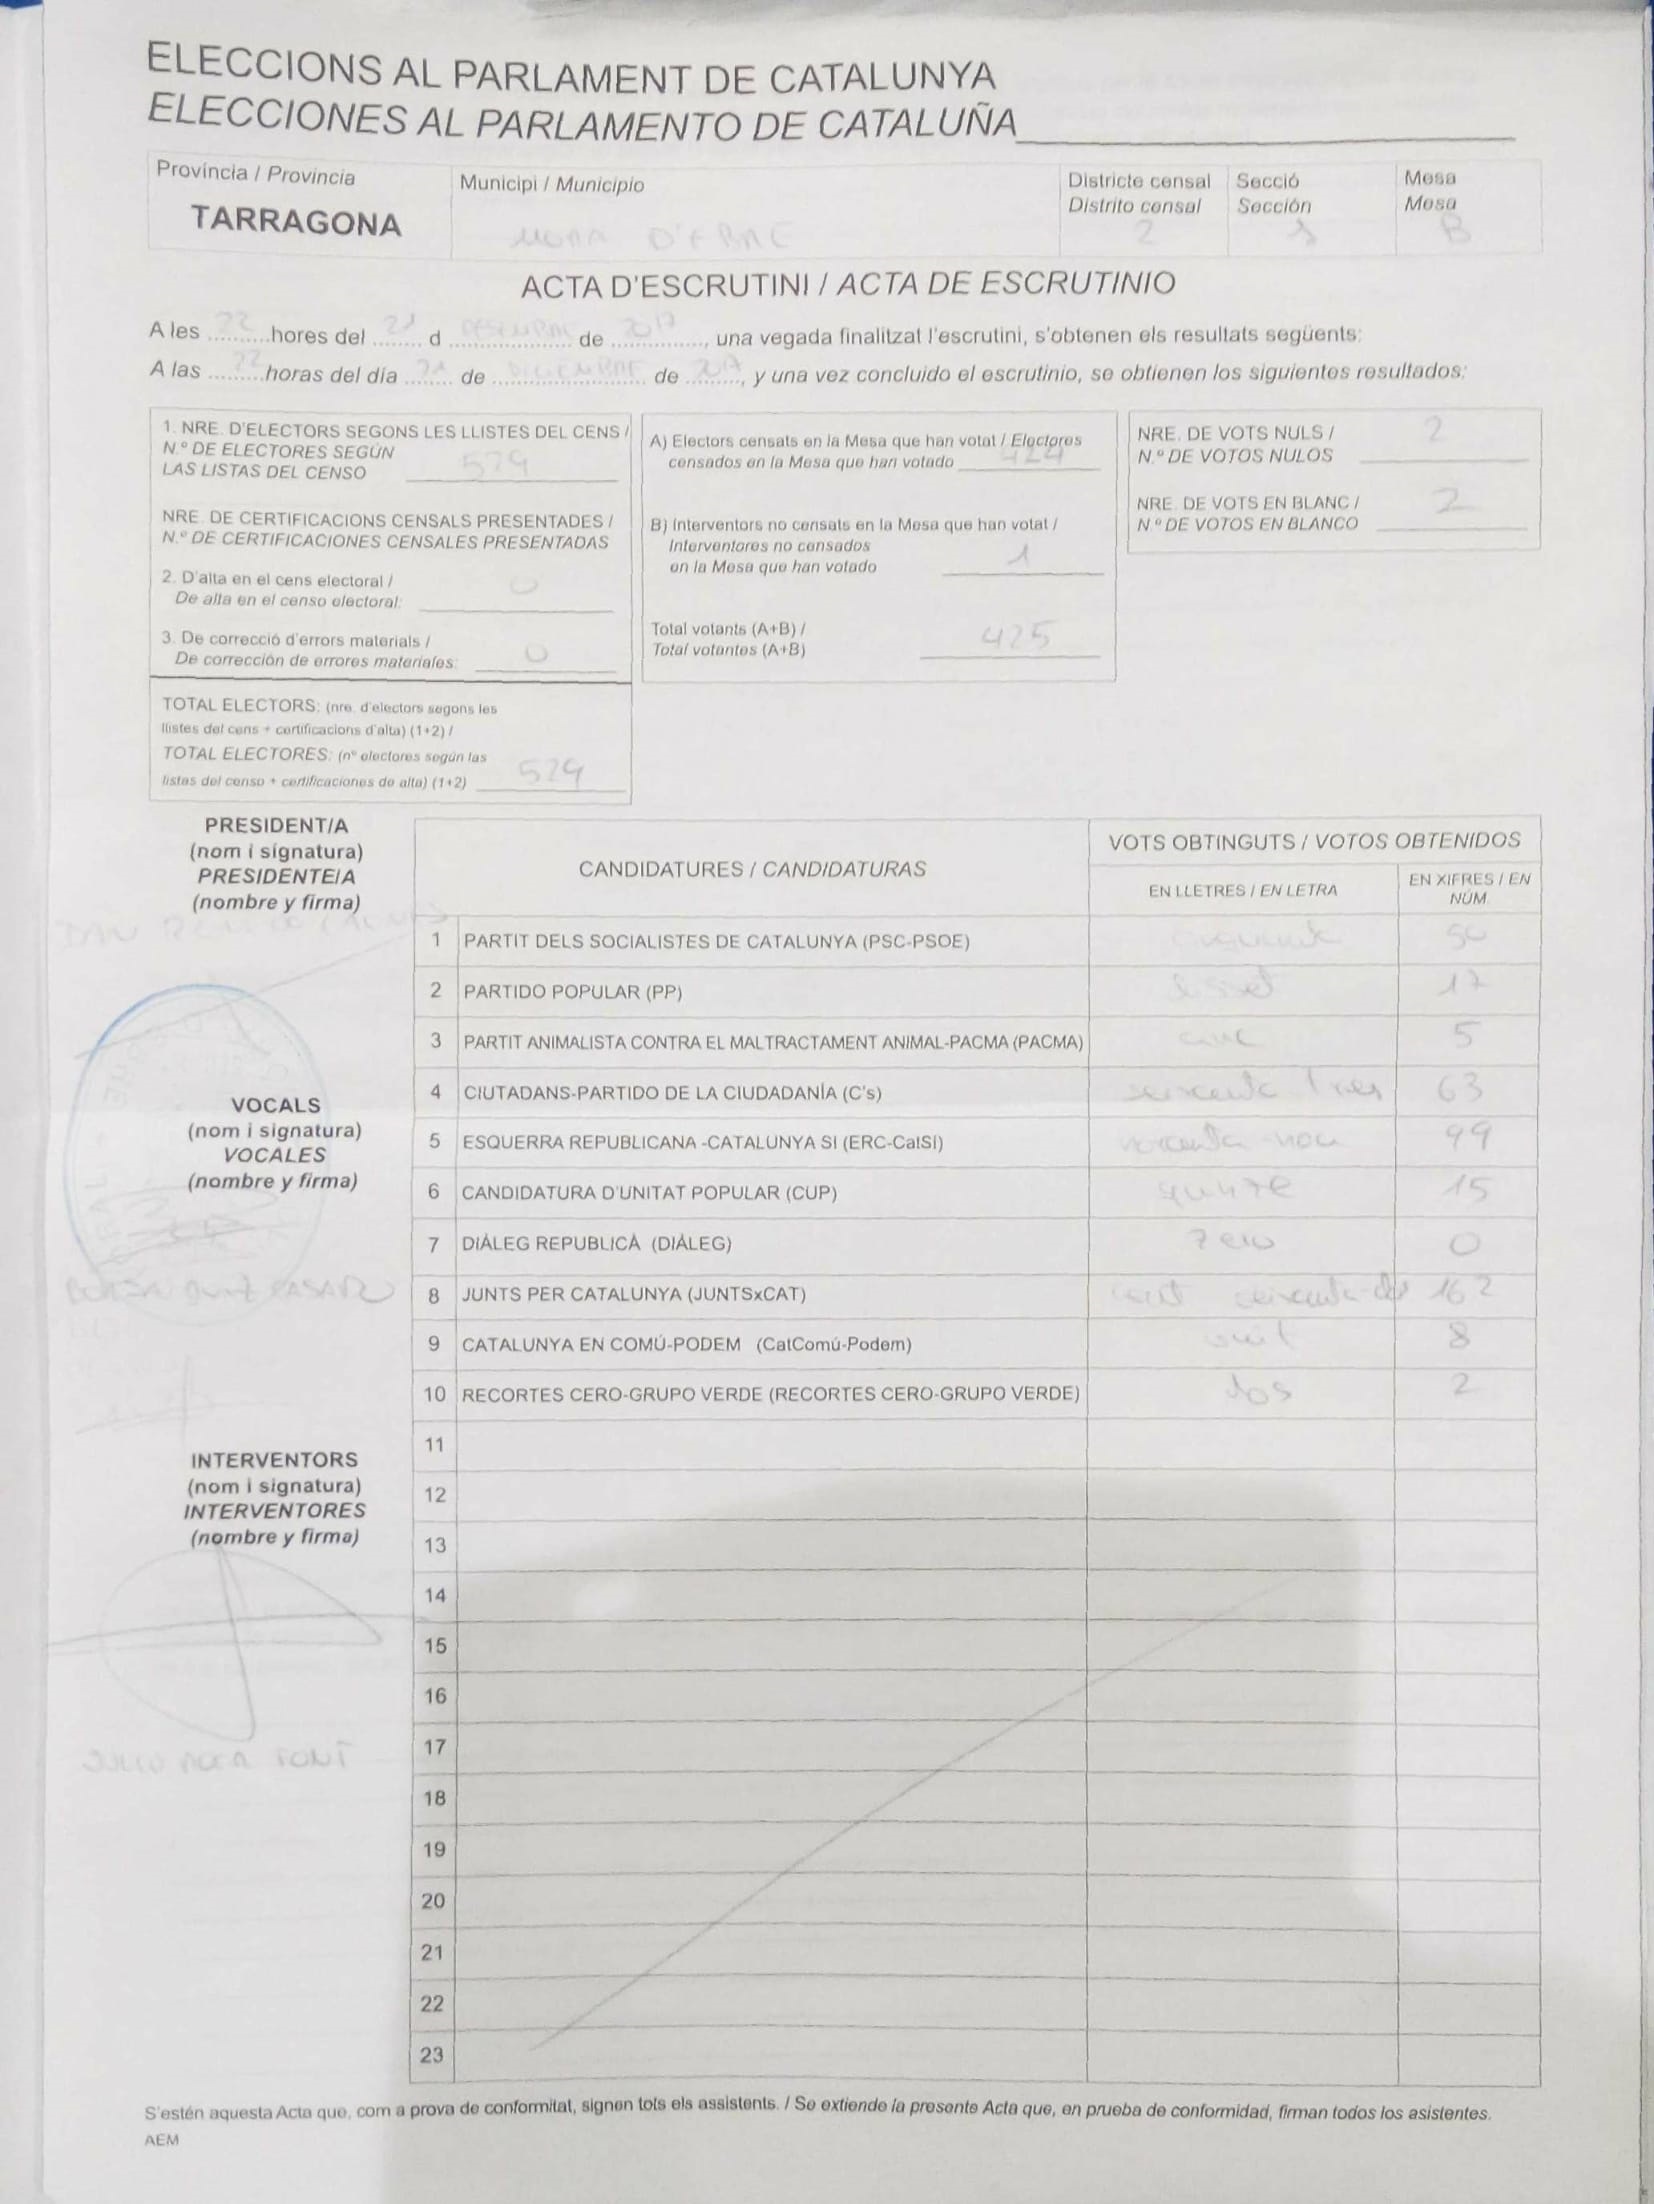 ELECCIONS AL PARLAMENT DE CATALUNYA
ELECCIONES AL PARLAMENTO DE CATALUÑA
Província / Provincia
TARRAGONA
Municipi / Municipio
MORA D'EBRE
Districte censal
Distrito censal
2
Secció
Sección
1
Mesa
Mesa
B
ACTA D'ESCRUTINI / ACTA DE ESCRUTINIO
A les 22 hores del 21 d DESEMBRE de 2017, una vegada finalitzat l'escrutini, s'obtenen els resultats següents:
A las 22 horas del día 21 de DICIEMBRE de 2017, y una vez concluido el escrutinio, se obtienen los siguientes resultados:
1. NRE. D'ELECTORS SEGONS LES LLISTES DEL CENS /
N.º DE ELECTORES SEGÚN
LAS LISTAS DEL CENSO 529
NRE. DE CERTIFICACIONS CENSALS PRESENTADES /
N.º DE CERTIFICACIONES CENSALES PRESENTADAS
2. D'alta en el cens electoral /
De alta en el censo electoral: 0
3. De correcció d'errors materials /
De corrección de errores materiales: 0
TOTAL ELECTORS: (nre. d'electors segons les
llistes del cens + certificacions d'alta) (1+2) /
TOTAL ELECTORES: (nº electores según las
listas del censo + certificaciones de alta) (1+2) 529
A) Electors censats en la Mesa que han votat / Electores
censados en la Mesa que han votado 424
B) Interventors no censats en la Mesa que han votat /
Interventores no censados
en la Mesa que han votado 1
Total votants (A+B) /
Total votantes (A+B) 425
NRE. DE VOTS NULS /
N.º DE VOTOS NULOS 2
NRE. DE VOTS EN BLANC /
N.º DE VOTOS EN BLANCO 2
PRESIDENT/A
(nom i signatura)
PRESIDENTE/A
(nombre y firma)
VOCALS
(nom i signatura)
VOCALES
(nombre y firma)
INTERVENTORS
(nom i signatura)
INTERVENTORES
(nombre y firma)
FONT
CANDIDATURES / CANDIDATURAS
VOTS OBTINGUTS / VOTOS OBTENIDOS
EN LLETRES / EN LETRA
EN XIFRES / EN
NÚM.
1 PARTIT DELS SOCIALISTES DE CATALUNYA (PSC-PSOE) cinquanta 50
2 PARTIDO POPULAR (PP) disset 17
3 PARTIT ANIMALISTA CONTRA EL MALTRACTAMENT ANIMAL-PACMA (PACMA) cinc 5
4 CIUTADANS-PARTIDO DE LA CIUDADANÍA (C's) seixanta tres 63
5 ESQUERRA REPUBLICANA -CATALUNYA SI (ERC-CatSí) noranta-nou 99
6 CANDIDATURA D'UNITAT POPULAR (CUP) quinze 15
7 DIÀLEG REPUBLICÀ (DIÀLEG) zero 0
8 JUNTS PER CATALUNYA (JUNTSxCAT) cent seixanta-dos 162
9 CATALUNYA EN COMÚ-PODEM (CatComú-Podem) vuit 8
10 RECORTES CERO-GRUPO VERDE (RECORTES CERO-GRUPO VERDE) dos 2
11
12
13
14
15
16
17
18
19
20
21
22
23
S'estén aquesta Acta que, com a prova de conformitat, signen tots els assistents. / Se extiende la presente Acta que, en prueba de conformidad, firman todos los asistentes.
AEM